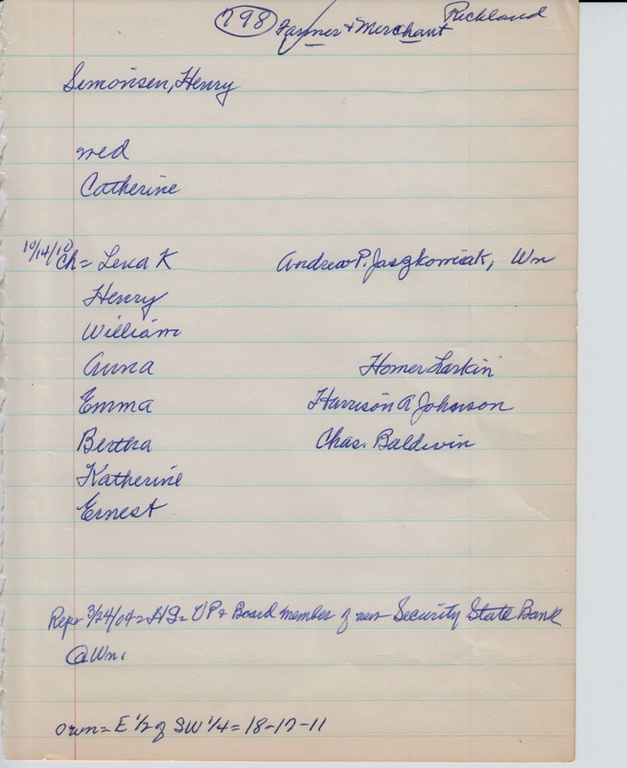 798 Farmer & Merchant Richland
Simonsen, Henry
wed
Catherine
10/14/10 Ch = Lena K Andrew P. Jaszkowiak, Wn
Henry
William
Anna Homer Larkin
Emma Harrison A Johnson
Bertha Chas. Baldwin
Katherine
Ernest
Rep 3/24/04 = HS = VP & Board member of new Security State Bank
@ Wn.
own = E 1/2 of SW 1/4 = 18-17-11